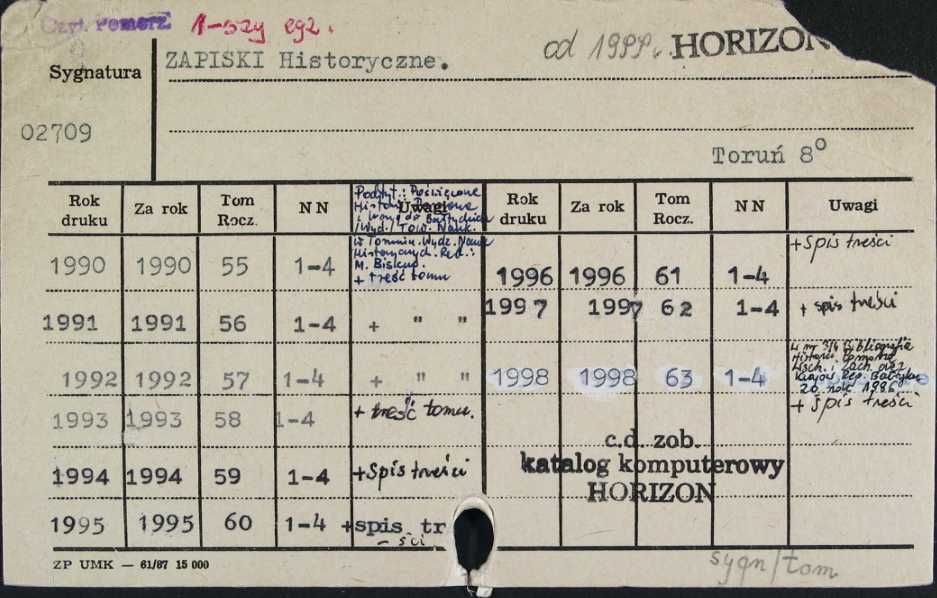 Czyt. Pomorz. 1-szy egz.
ZAPISKI Historyczne. od 1999r. HORIZON
Sygnatura
02709
Toruń 8°
Rok druku Za rok Tom Rocz. NN Uwagi Rok druku Za rok Tom Rocz. NN Uwagi
Podtyt.: Poświęcone
Historii Pomorza
i krajów Bałtyckich
/Wyd./ Tow. Nauk.
w Toruniu. Wydz. Nauk
Historycznych. Red.:
M. Biskup.
1990 1990 55 1-4 + treść tomu
1991 1991 56 1-4 + " "
1992 1992 57 1-4 + " "
1993 1993 58 1-4 + treść tomu.
1994 1994 59 1-4 +Spis treści
1995 1995 60 1-4 +spis tr
- ści
1996 1996 61 1-4 +Spis treści
1997 1997 62 1-4 + spis treści
1998 1998 63 1-4 w nr 3/4 Bibliografia
Historii Pomorza
Wsch. i Zach. oraz
Krajów Reg. Bałtyku
za rok 1996
+ Spis treści
c.d. zob.
katalog komputerowy
HORIZON
ZP UMK — 61/87 15 000
sygn/tom